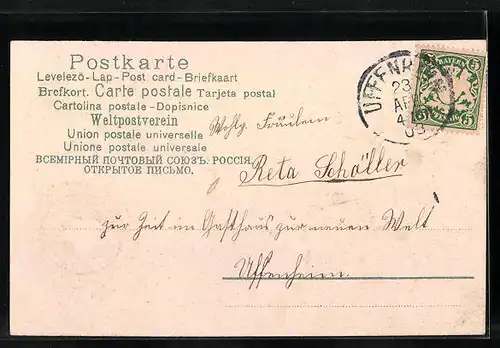 Postkarte
Levelező-Lap-Post card-Briefkaart
Brefkort. Carte postale Tarjeta postal
Cartolina postale-Dopisnice
Weltpostverein
Union postale universelle
Unione postale universale
ВСЕМІРНЫЙ ПОЧТОВЫЙ СОЮЗЪ. РОССІЯ.
ОТКРЫТОЕ ПИСЬМО.
23
5
BAYERN
5
5
Wohlg. Fräulein
Reta Schöller
zur Zeit im Gasthaus zur neuen Welt
Uffenheim.